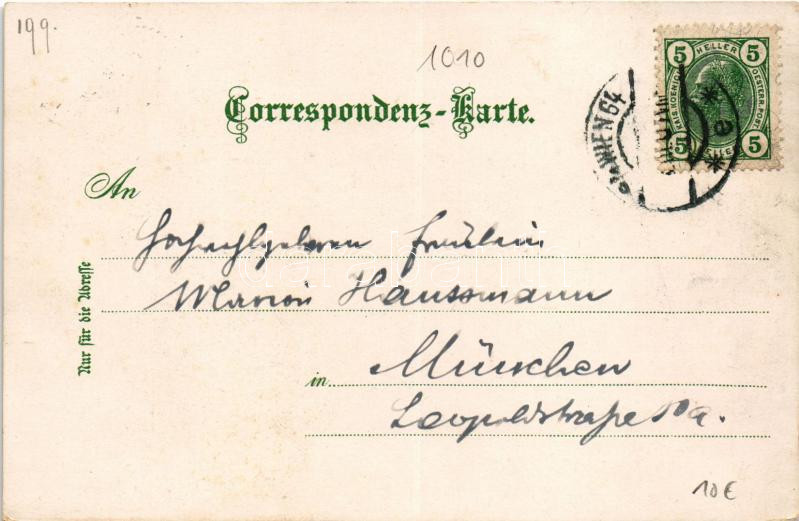 199.
1010
5 HELLER 5
KAIS. KOENIGL. OESTERR. POST
5 HELLER 5
WIEN 64
* a *
Correspondenz-Karte.
An
Nur für die Adresse
Fräulein
Marion Haussmann
in München
Leopoldstraße
10€